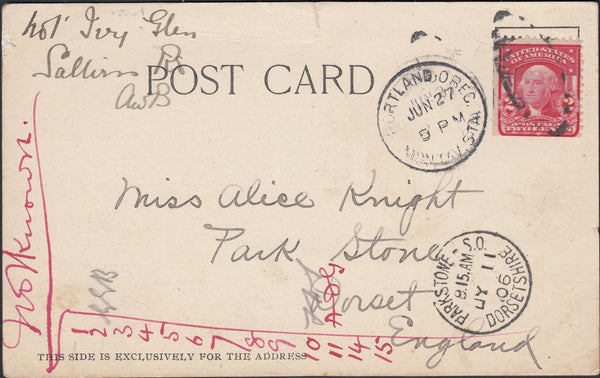 not Ivy Glen
Salterns Rd
AWB
POST CARD
PORTLAND, OREG.
JUN 27
5 PM
STA.
UNITED STATES OF AMERICA
POSTAGE
TWO CENTS
Miss Alice Knight
Park Stone
Dorset
England
PARKSTONE - S.O.
9.15 AM
JY 11
06
DORSETSHIRE
Not Known.
1 2 3 4 5 6 7 8 9 10 11 14 15
THIS SIDE IS EXCLUSIVELY FOR THE ADDRESS